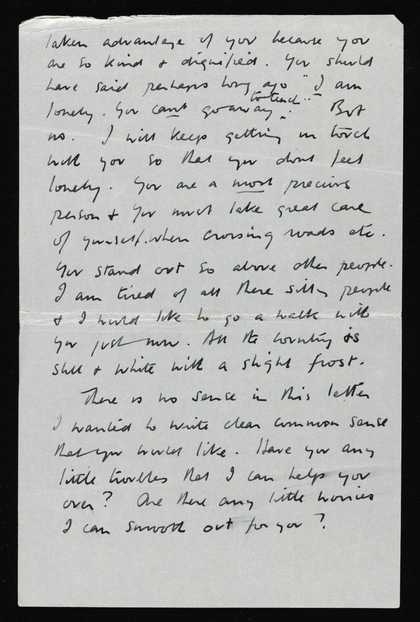 taken advantage of you because you
are so kind & dignified. You should
have said perhaps long ago "I am
lonely. You can't go away to teach". But
no. I will keep getting in touch
with you so that you dont feel
lonely. You are a most precious
person & you must take great care
of yourself when crossing roads etc.
You stand out so above other people.
I am tired of all these silly people
& I would like to go a walk with
you just now. All the country is
still & white with a slight frost.
There is no sense in this letter
I wanted to write clean common sense
that you would like. Have you any
little troubles that I can help you
over? Are there any little worries
I can smooth out for you?